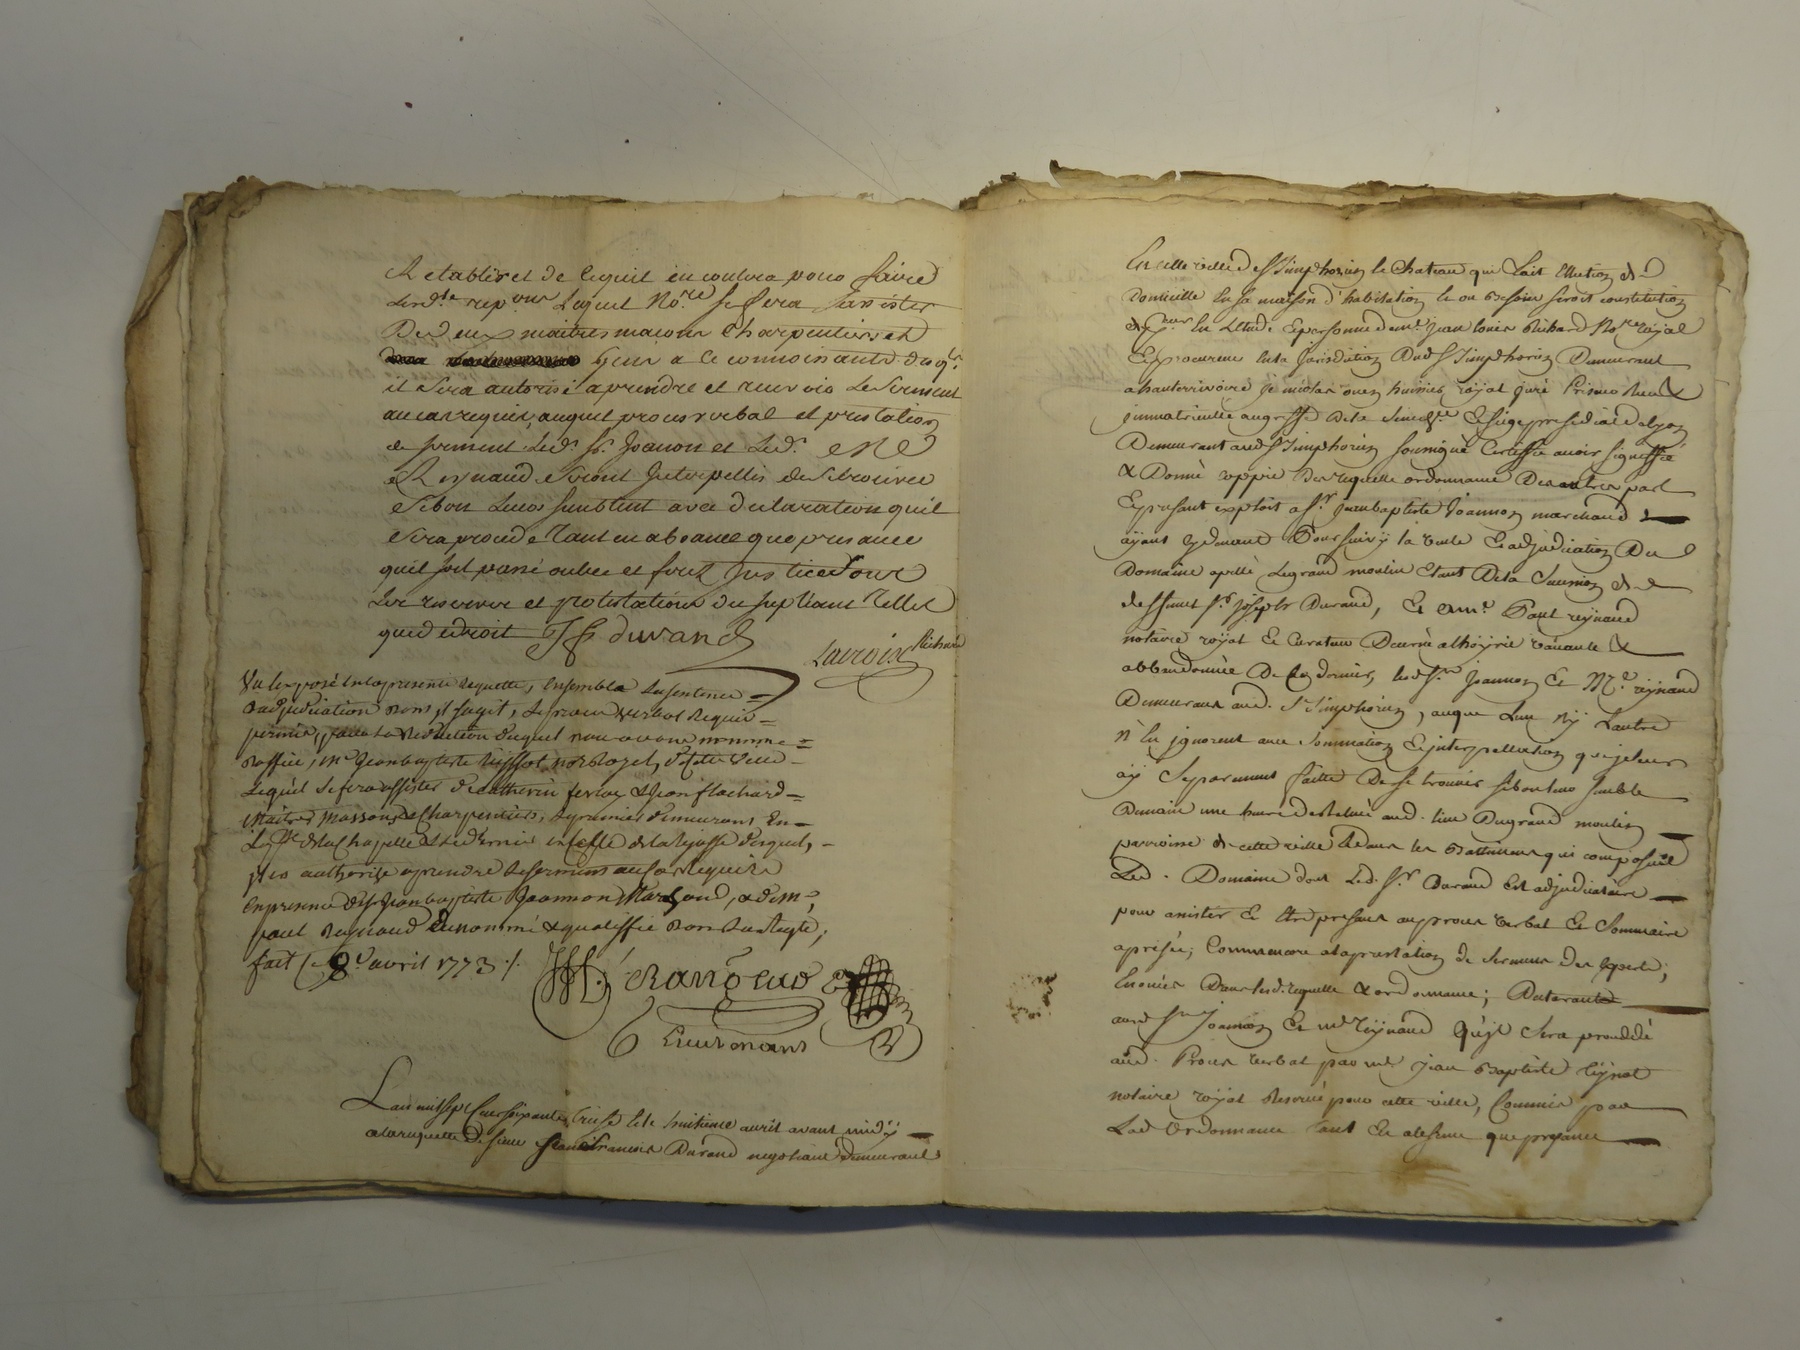 Retablir et de ce quil en coutera pour faire
lesd.tes rep.ons Lequel No.re se fera assister
De deux maitres maçons Charpentiers et
gens a ce connoissants desq.ls
il sera autorisé a prendre et recevoir le serment
au cas requis, auquel procès verbal et prestation
de serment led. Sr. Joanon et led. Me
Reynaud seront Interpellés de se trouver
si bon leur semble avec declaration quil
sera procedé tant en absence que presence
quil soit passé outre et ferez Justice sous
les reserves et protestations du supliant telles
que de droit J f durand
Lacroix Richard
Vu l'exposé en la presente Requette, ensemble la sentence
d'adjudication dont s'agit, le procès verbal Requis
permis, pour la Redaction duquel nous avons nommé
d'office, Me Jean baptiste notre Royal, de cette ville
Lequel se fera assister de catherin ferlay & Jean flachard
Maitres Massons & Charpentiers, le premier demeurant En
la p.sse de la Chapelle & le dernier en celle de la Rajasse desquels,
il es authorisé a prendre le serment au cas Requis
En presence de Sr Jean baptiste Joannon Marchand, & de me
paul Reynaud denommé & qualiffié dans la Requete,
fait ce 8e avril 1773 ./.
Lieutenant
L'an mil sept cent soixante treise et le huitieme avril avant midÿ
a la requette de sieur Jean François Durand negotiant demeurant
En cette ville de St Simphorien le Chateau qui fait Election de
Domicille En sa maison d'habitation et ou besoin seroit constitution
de p.eur En L'Etude & personne de me. Jean louis Richard No.re royal
& procureur En la Jurisdiction Dud St Simphorien Demeurant
a hauterivoire je nicolas huissier royal juré Priseur vendeur
immatriculé au greffe de la Senech.ée & siege presidial de lyon
Demeurant aud St Simphorien soussigné Certiffie avoir signiffié
& Donné coppie Des requette ordonnance Des autres part
& present exploit a Sr. jean baptiste Joannon marchand
aÿant cydevant Poursuivÿ la vente & adjudication Du
Domaine apellé Le grand moulin Etant De la Succession de
deffunt Sr. joseph Durand, Et a me. Paul reÿnaud
notaire roÿal & Curateur Decerné a l'hoyrie vacante &
abbandonnée De ce dernier, lesd Sr. Joannon Et Me. reÿnaud
Demeurant aud. St Simphorien, a ce que L'un nÿ L'autre
n'En jgnorent avec sommation & interpellation que je leur
aÿ Separement faitte De se trouver si bon leur semble
Demain une heure de relevée aud. lieu Du grand moulin
parroisse de cette ville & dans les Battiments qui composent
Led. Domaine dont Led. Sr. Durand Est adjudicataire
pour assister & Etre present au procès verbal Et Sommaire
aprisée, comme encore a la prestation de serment des Experts,
Enoncés Dans lesd. requette & ordonnance; Declarant
auxd Sr Joannon Et me reÿnaud qu'jl Sera proceddé
aud. Procès verbal par me jean Baptiste
notaire roÿal Reservé pour cette ville, Commis par
Lad Ordonnance tant En absence que presence